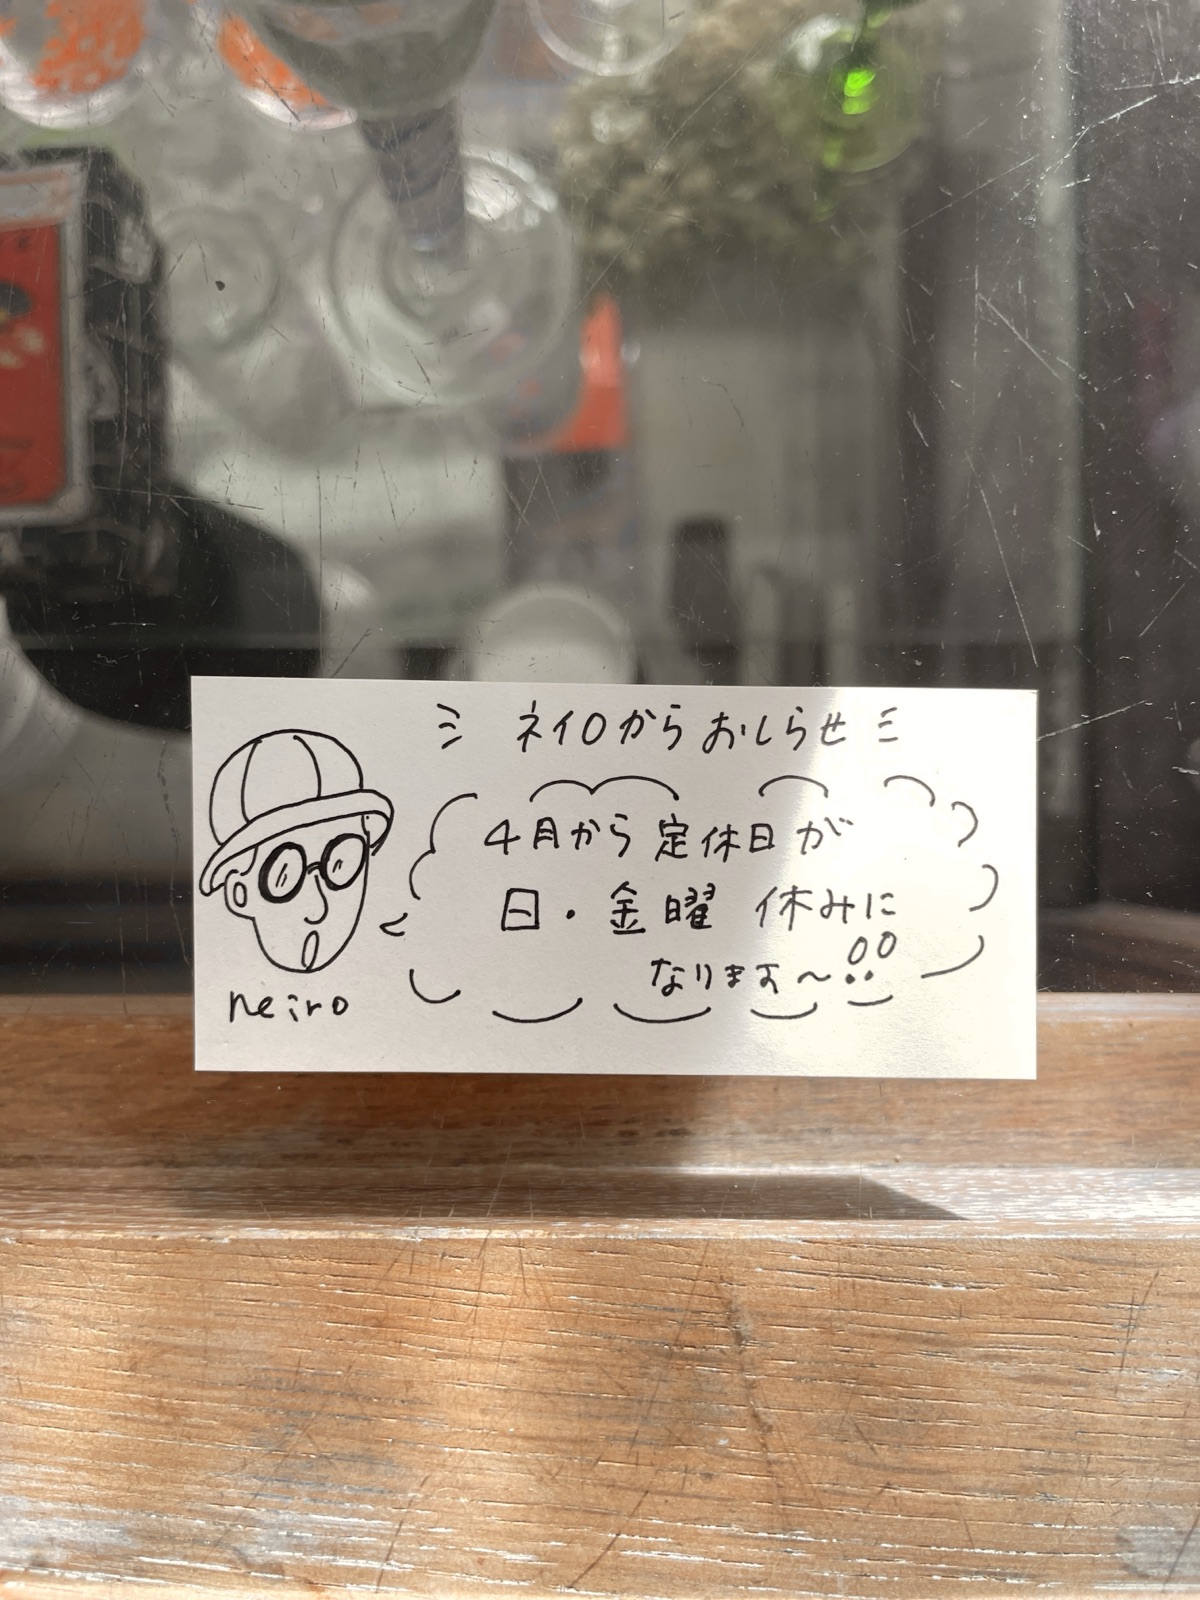 ミ ネイロからおしらせ ミ
4月から定休日が
日・金曜 休みに
なります〜!!
neiro